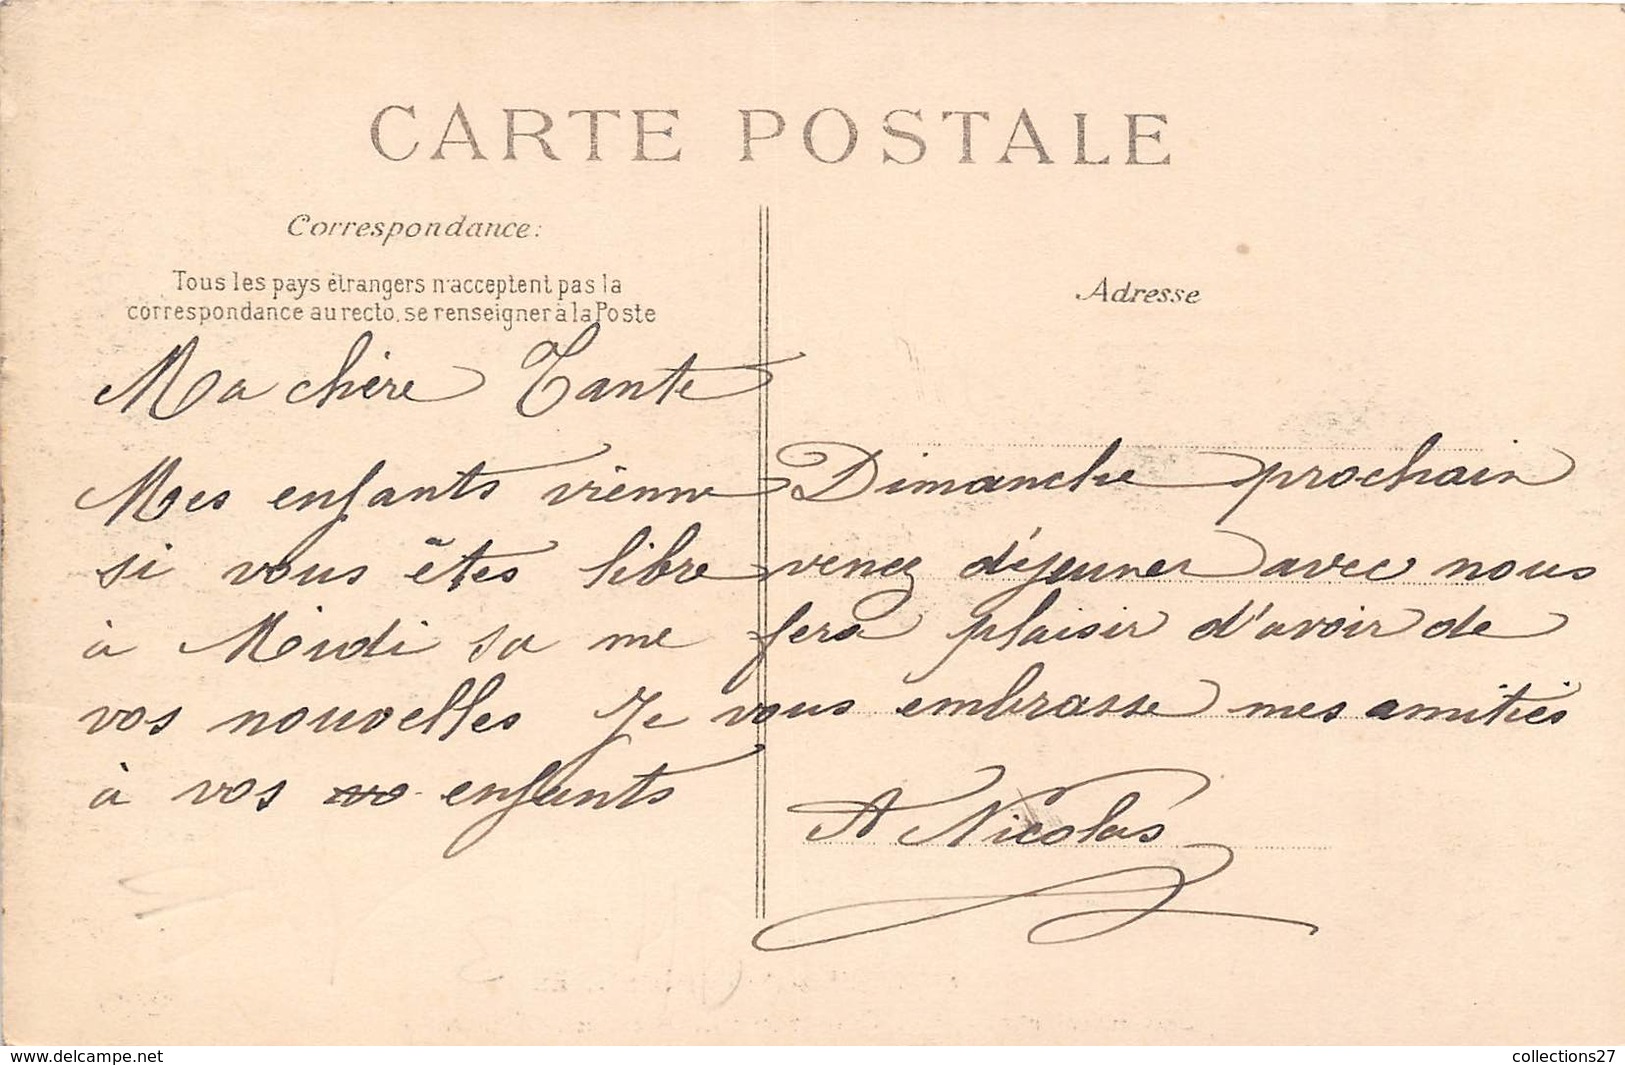 CARTE POSTALE
Correspondance:
Tous les pays étrangers n'acceptent pas la
correspondance au recto, se renseigner à la Poste
Adresse
Ma chère Tante
Mes enfants vienne Dimanche prochain
si vous êtes libre venez déjeuner avec nous
à Midi sa me fera plaisir d'avoir de
vos nouvelles Je vous embrasse mes amitiés
à vos enfants
A Nicolas
www.delcampe.net
collections27